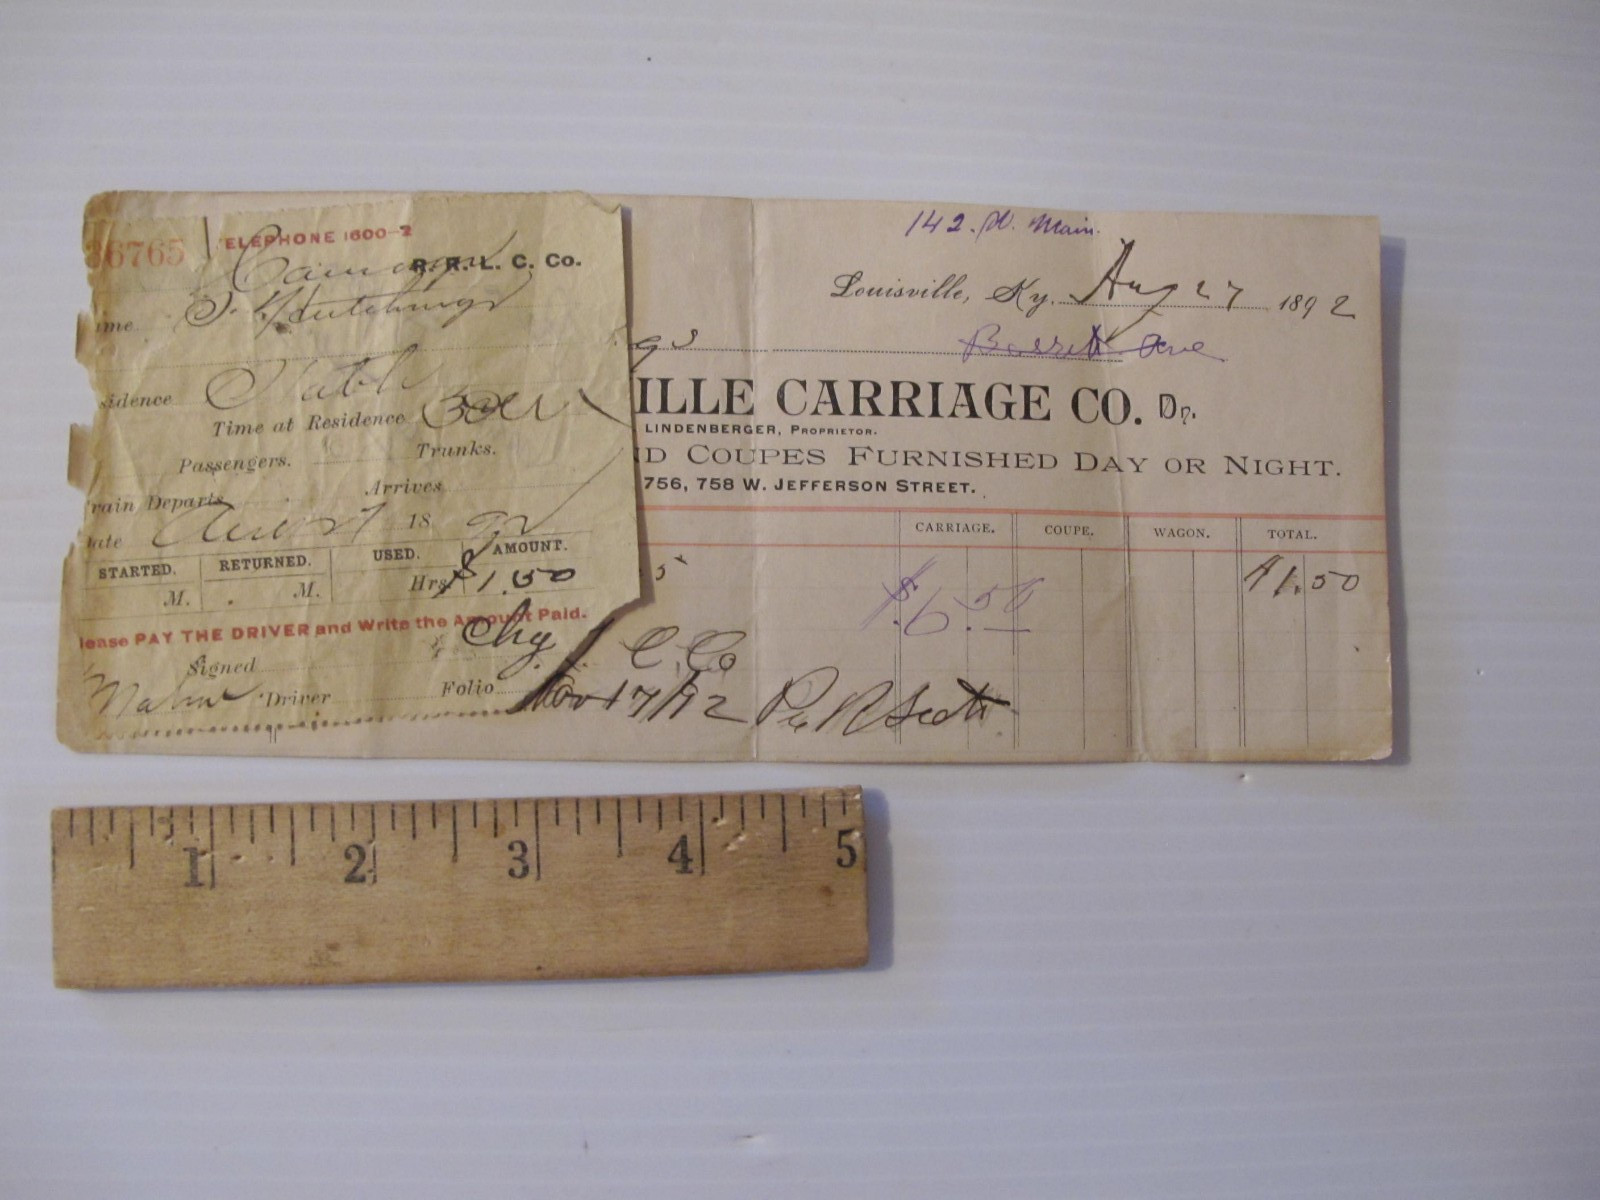 36765
TELEPHONE 1600-2
R. R. L. C. Co.
ame S. Hutchings
sidence Stable
Time at Residence
Passengers. Trunks.
rain Departs Arrives
ate 18 92
STARTED. RETURNED. USED. AMOUNT.
M. M. Hrs $1.50
lease PAY THE DRIVER and Write the Amount Paid.
Signed
Driver Folio
142. W. Main.
Louisville, Ky. Aug 27 1892
gs Barrett Ave
ILLE CARRIAGE CO. Dr.
LINDENBERGER, PROPRIETOR.
ND COUPES FURNISHED DAY OR NIGHT.
756, 758 W. JEFFERSON STREET.
CARRIAGE. COUPE. WAGON. TOTAL.
5 $1.50
Chg. L C. Co
Nov 17/92 Per R Scott
1 2 3 4 5